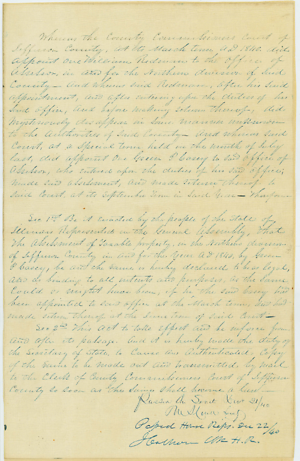 Whereas the County Commissioners Court of
Jefferson County, at its March term, A.D. 1840, did
appoint one William Redman to the Office of
Assessor, in and for the Northern division of said
County — and whereas said Redman, after his said
appointment, and after entering upon the duties of his
said office, and before making return thereof, did
mysteriously disappear in some manner unbeknown
to the Authorities of said County — And whereas said
Court, at a Special term, held in the month of July
last, did appoint one Green P. Casey to said office of
Assessor, who entered upon the duties of his said office,
made said assessment, and made return thereof to
said Court at its September term in said year — Therefore
Sec 1st. Be it enacted by the people of the State of
Illinois Represented in the General Assembly, That
the Assessment of taxable property, in the northern division
of Jefferson County, in and for the Year A.D. 1840, by Green
P. Casey, be and the same is hereby declared to be legal,
and as binding to all intents and purposes, as the same
could or might have been, if he the said Casey had
been appointed to said office at the March term, and had
made return thereof at the June term of said Court —
Sec 2nd. This Act to take effect and be in force from
and after its passage. And it is hereby made the duty
of the Secretary of State, to cause an Authenticated Copy
of the same to be made out and transmitted, by mail
to the Clerk of County Commissioners Court of Jefferson
County so soon as the same shall become a law.
Passed the Senate
Passed House Reps. Dec 22/40
J Calhoun Clk H.R.